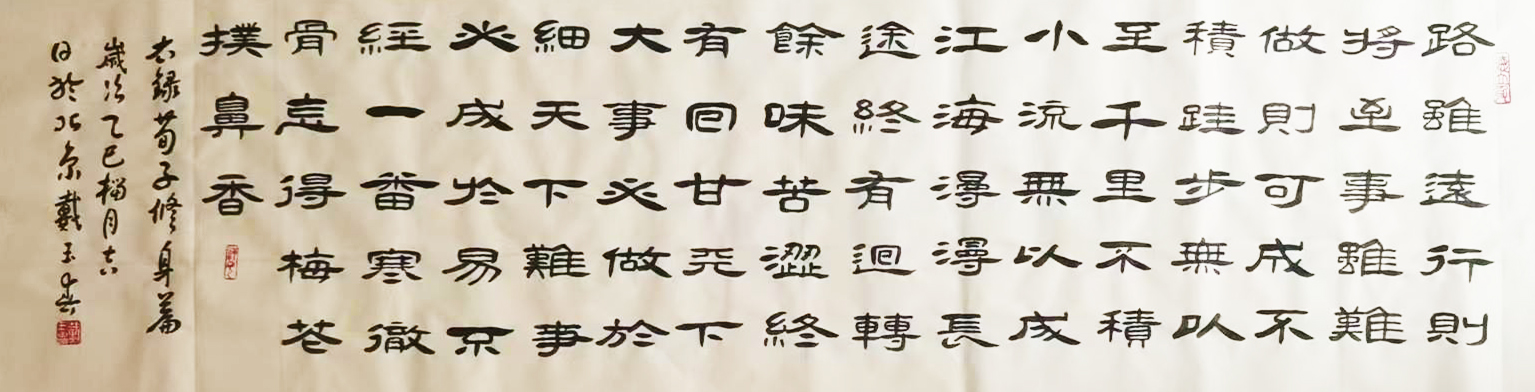 路雖遠行則
將至事雖難
做則可成不
積跬步無以
至千里不積
小流無以成
江海漫漫長
途終有迴轉
餘味苦澀終
有回甘天下
大事必做於
細天下難事
必成於易不
經一番寒徹
骨忘得梅花
撲鼻香
右錄荀子修身篇
歲次乙巳榴月吉
日於北京戴玉春